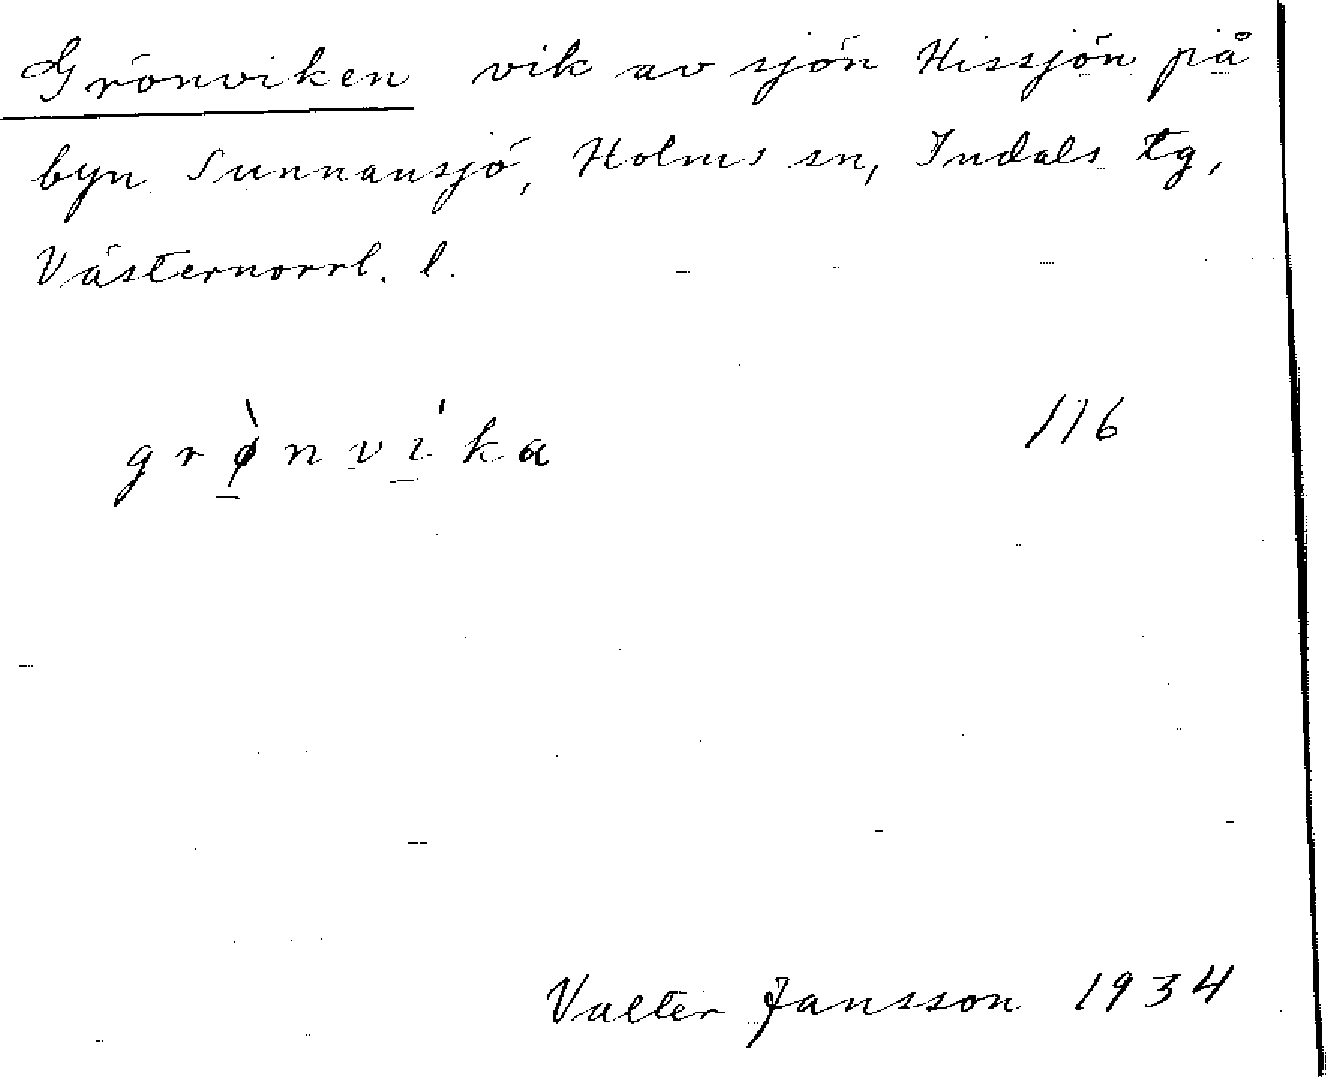 Grönviken vik av sjön Hissjön på
byn Sunnansjö, Holms sn, Indals tg,
Västernorrl. l.
grø̲̀nví̲ka 116
Valter Jansson 1934